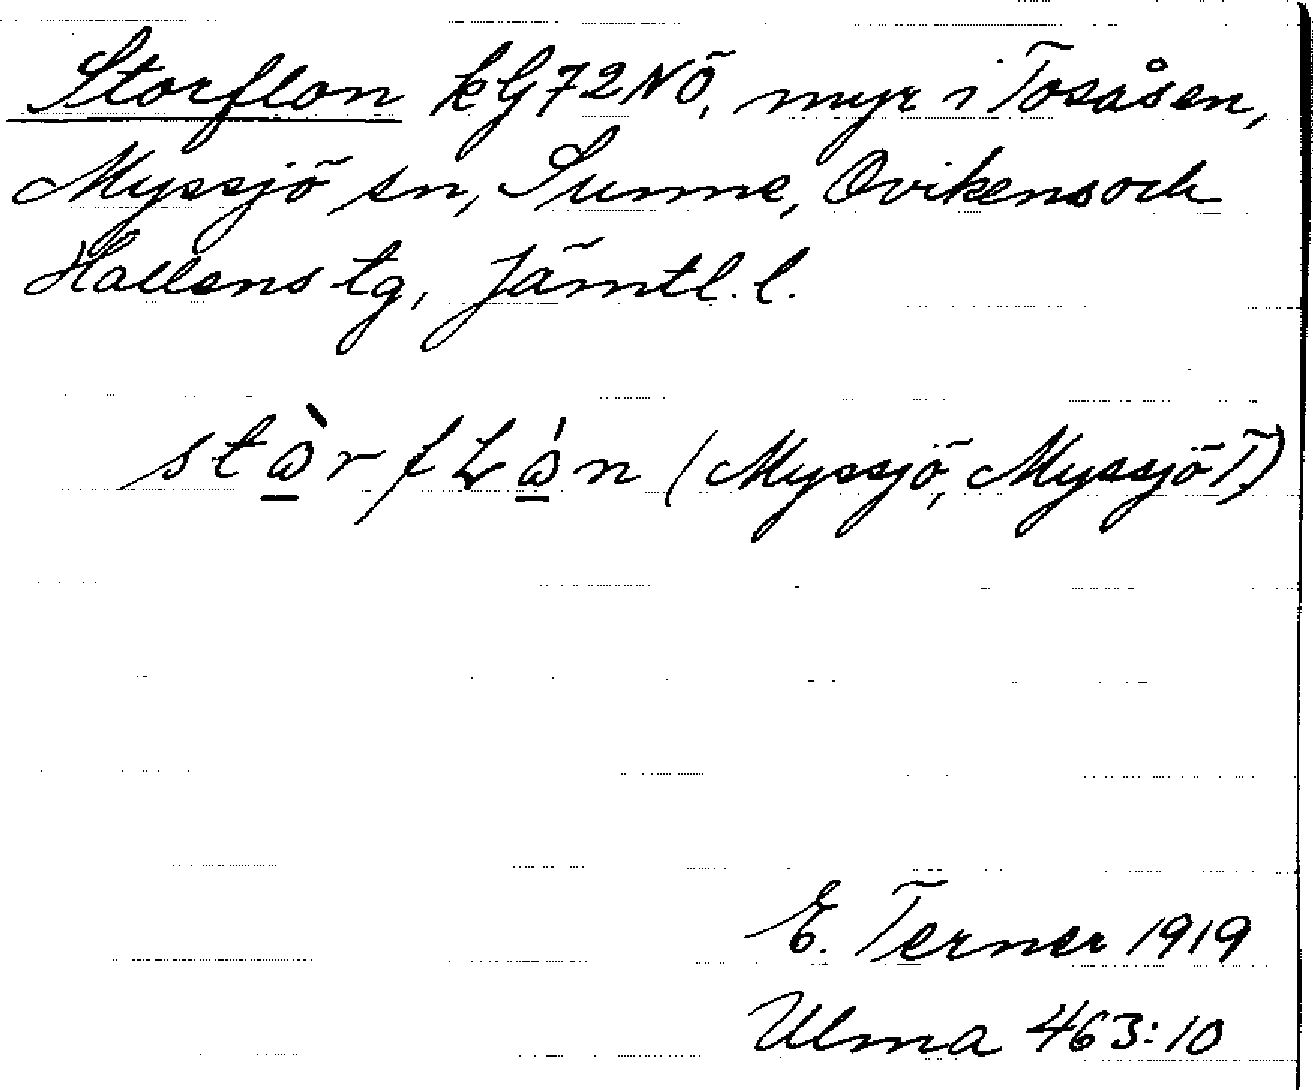 Storflon kG72NÖ, myr i Tosåsen,
Myssjö sn, Sunne, Ovikens och
Hallens tg, Jämtl. l.
stɷ̲̀rfLɷ̲́n (Myssjö, Myssjö T.)
E. Terner 1919
Ulma 463:10